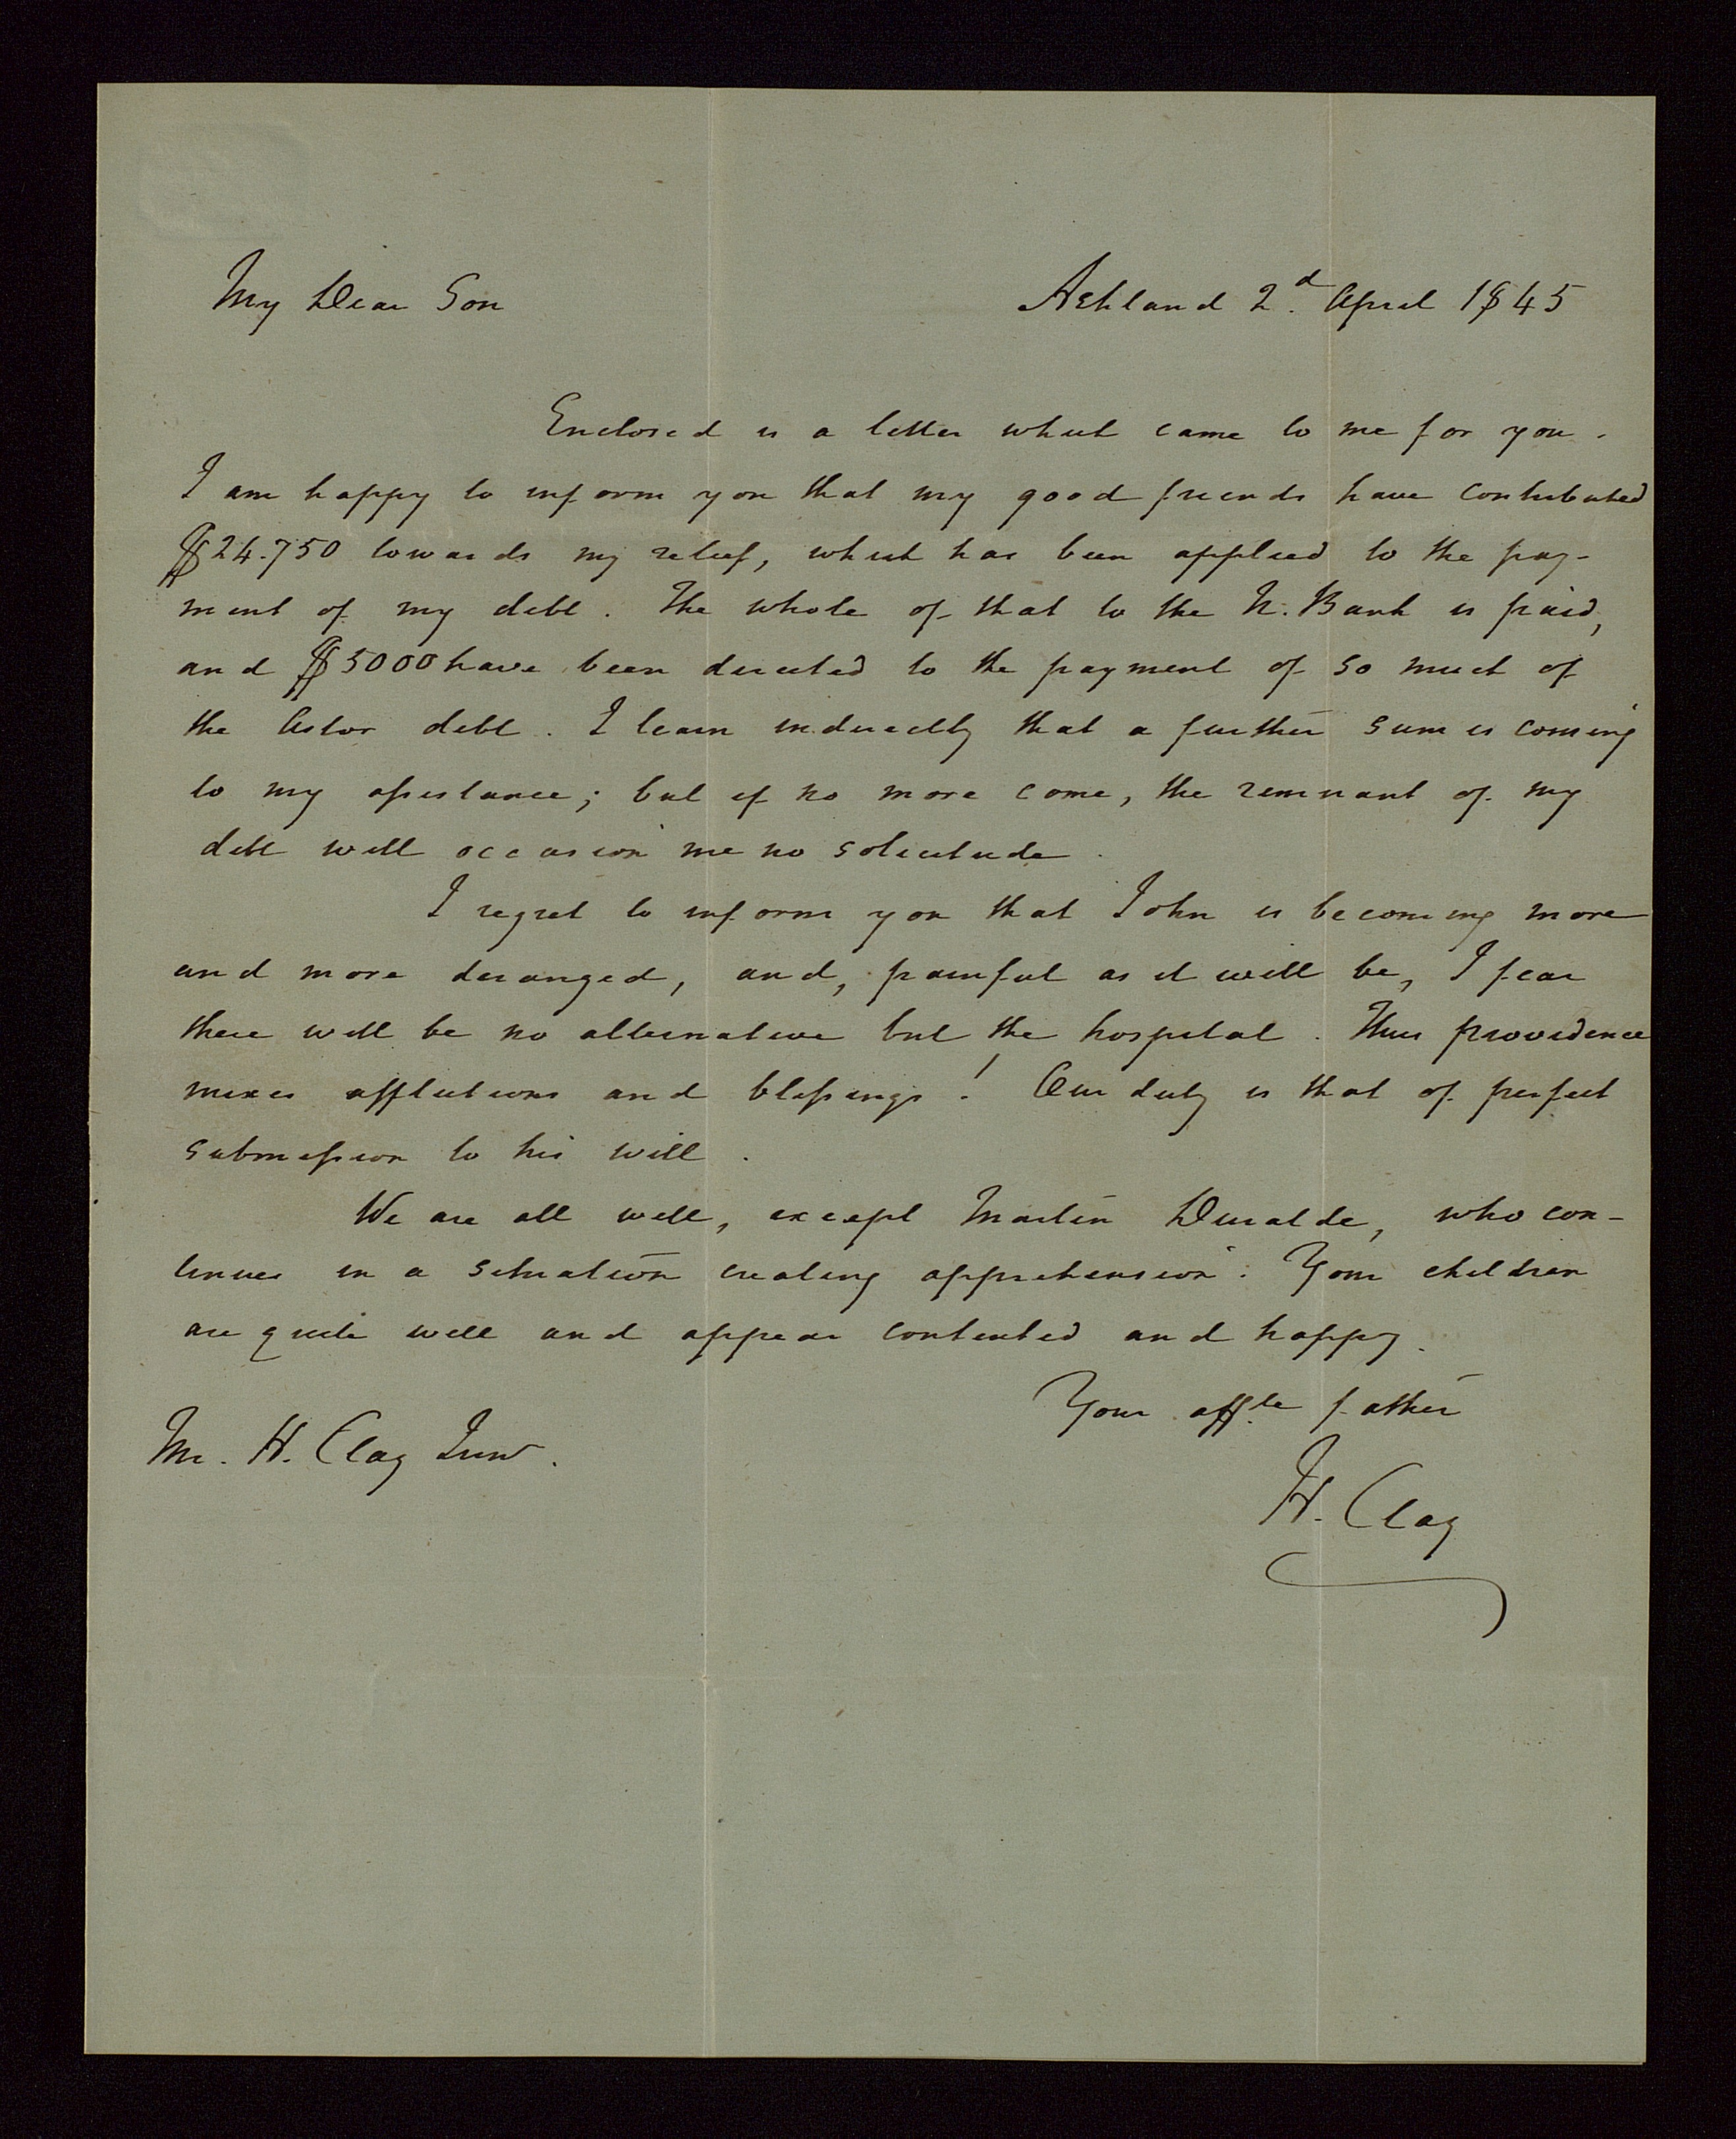 My Dear Son Ashland 2d. April 1845
Enclosed is a letter which came to me for you.
I am happy to inform you that my good friends have contributed
$24.750 towards my relief, which has been applied to the pay-
ment of my debt. The whole of that to the N. Bank is paid,
and $5000 have been directed to the payment of so much of
the Astor debt. I learn indirectly that a further sum is coming
to my assistance; but if no more come, the remnant of my
debt will occasion me no solicitude.
I regret to inform you that John is becoming more
and more deranged, and, painful as it will be, I fear
there will be no alternative but the hospital. Thus providence
mixes afflictions and blessings! Our duty is that of perfect
submission to his will.
We are all well, except Martin Duralde, who con-
tinues in a situation creating apprehension. Your children
are quite well and appear contented and happy.
Your affte. father
Mr. H. Clay Junr.
H. Clay